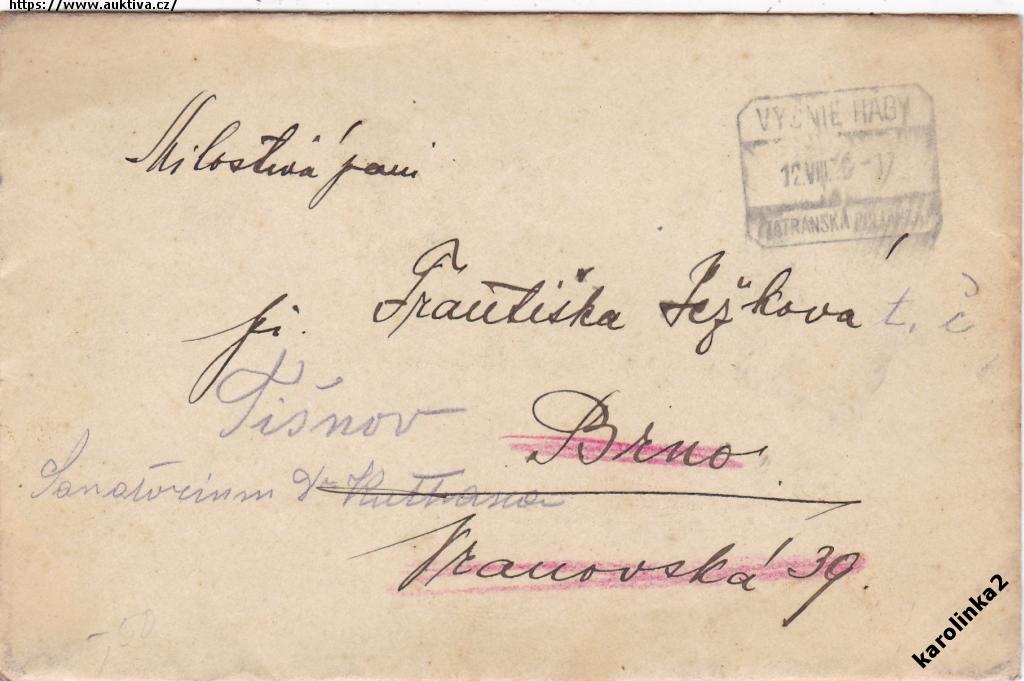 https://www.auktiva.cz/
VYŠNIE HÁGY
12.VIII.
TATRANSKÁ
Milostivá paní
pí. Františka Ježková t. č
Tišnov
Brno
Sanatorium Dr Kuthana
Vranovská 39.
karolinka2